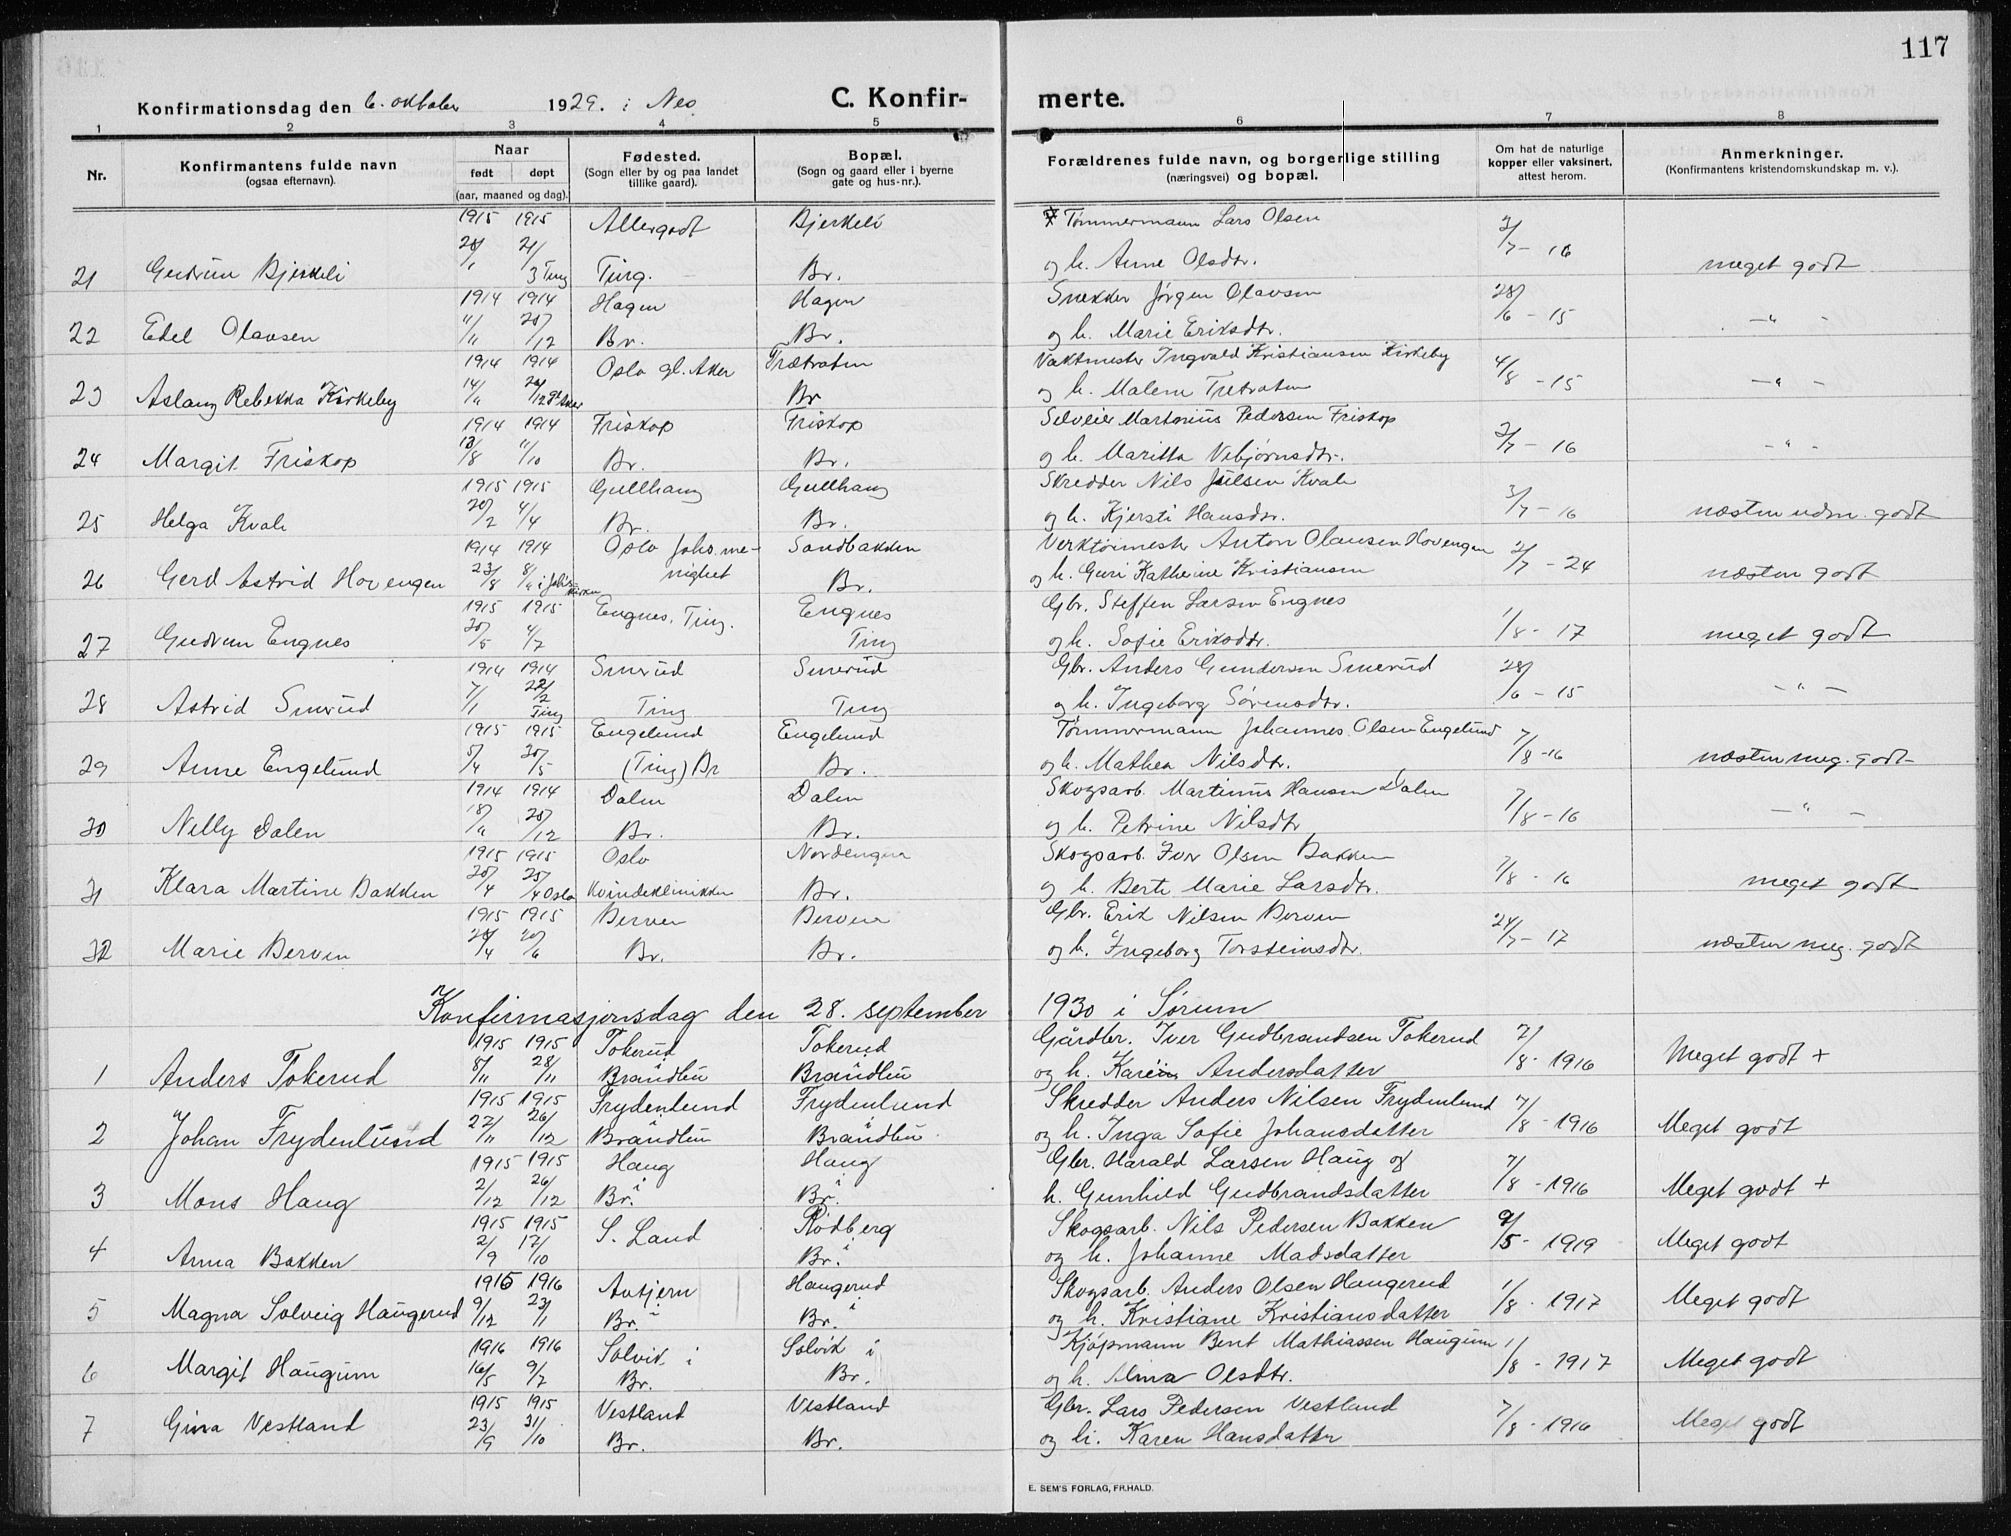 117
Konfirmationsdag den 6. oktober 1929. i Nes C. Konfir- merte.
1 2 3 4 5 6 7 8
Nr. Konfirmantens fulde navn (ogsaa efternavn). Naar født døpt (aar, maaned og dag). Fødested. (Sogn eller by og paa landet tillike gaard). Bopæl. (Sogn og gaard eller i byerne gate og hus-nr.). Forældrenes fulde navn, og borgerlige stilling (næringsvei) og bopæl. Om hat de naturlige kopper eller vaksinert, attest herom. Anmerkninger. (Konfirmantens kristendomskundskap m. v.).
1915 1915 Allergodt Bjerkeli Tømmermann Lars Olsen
21 Gudrun Bjerkeli 3 Ting Ting. Br. og h. Anne Olsdtr. 2/7 - 16 meget godt
1914 1914 Hagen Hagen Snekker Jørgen Olavsen
22 Edel Olavsen 11/11 20/12 Br. Br. og h. Marie Eriksdtr. 28/6 - 15 - " -
1914 1914 Oslo gl. Aker Trætraten Vaktmester Ingvald Kristiansen Kirkeby
23 Aslaug Rebekka Kirkeby 14/11 Br og h. Malene Tretraten 4/8 - 15 - " -
1914 1914 Friskop Friskop Selveier Martinius Pedersen Friskop
24 Margit Friskop 13/8 11/10 Br. Br. og h. Maritta Vebjørnsdtr. 2/7 - 16 - " -
1915 1915 Gullhaug Gullhaug Skredder Nils Julsen Kvale
25 Helga Kvale 20/2 4/4 Br. Br. og h. Kjersti Hansdtr. 3/7 - 16 næsten udm. godt
1914 1914 Oslo Johs. me- Sandbakken Verktøimester Anton Olausen Hovengen
26 Gerd Astrid Hovengen 23/8 8/11 i Johs. kirken nighet Br. og h. Guri Kathrine Kristiansen 2/7 - 24 næsten godt
1915 1915 Engnes, Ting. Engnes Gbr. Steffen Larsen Engnes
27 Gudrun Engnes 20/5 4/7 Ting og h. Sofie Eriksdtr. 1/8 - 17 meget godt
1914 1914 Smerud Smerud Gbr. Anders Gundersen Smerud
28 Astrid Smerud 7/1 22/2 Ting Ting Ting og h. Ingeborg Sørensdtr. 28/6 - 15 - " -
1915 1915 Engelund Engelund Tømmermann Johannes Olsen Engelund
29 Anne Engelund 5/4 30/5 (Ting) Br Br. og h. Mathea Nilsdtr. 7/8 - 16 næsten meg. godt
1914 1914 Dalen Dalen Skogsarb. Martinius Hansen Dalen
30 Nelly Dalen 18/11 20/12 Br. Br. og h. Petrine Nilsdtr 7/8 - 16 - " -
1915 1915 Oslo Nordengen Skogsarb. Iver Olsen Bakken
31 Klara Martine Bakken 20/4 25/4 Oslo Kvindeklinikken Br. og h. Berte Marie Larsdtr. 7/8 - 16 meget godt
1915 1915 Berven Berven Gbr. Erik Nilsen Berven
32 Marie Berven 28/4 20/6 Br. Br. og h. Ingeborg Torsteinsdtr. 24/7 - 17 næsten meg. godt
Konfirmasjonsdag den 28. september 1930 i Sørum
1915 1915 Tokerud Tokerud Gårdbr. Iver Gudbrandsen Tokerud
1 Anders Tokerud 8/11 28/11 Brandbu Brandbu og h. Karen Andersdatter 7/8 - 1916 Meget godt +
1915 1915 Frydenlund Frydenlund Skredder Anders Nilsen Frydenlund
2 Johan Frydenlund 22/11 26/12 Brandbu Brandbu og h. Inga Sofie Johansdatter 7/8 - 1916 Meget godt
1915 1915 Haug Haug Gbr. Harald Larsen Haug og
3 Mons Haug 2/12 26/12 i Br. i Br. h. Gunhild Gudbrandsdatter 7/8 - 1916 Meget godt +
1915 1915 S. Land Rødberg Skogsarb. Nils Pedersen Bakken
4 Anna Bakken 2/9 17/10 i Br. og h. Johanne Madsdatter 9/5 - 1919 Meget godt
1915 1916 Avtjern Haugerud Skogsarb. Anders Olsen Haugerud
5 Magna Solveig Haugerud 9/12 23/1 i Br. i Br. og h. Kristiane Kristiansdatter 1/8 - 1917 Meget godt
1916 1916 Solvik i Solvik i Kjøpmann Bent Mathiassen Haugum
6 Margit Haugum 16/5 9/7 Br. Br. og h. Alma Olsdtr. 1/8 - 1917 Meget godt
1915 1915 Vestland Vestland Gbr. Lars Pedersen Vestland
7 Gina Vestland 23/9 31/10 Br. Br. og h. Karen Hansdatter 7/8 - 1916 Meget godt
E. SEM'S FORLAG, FR.HALD.